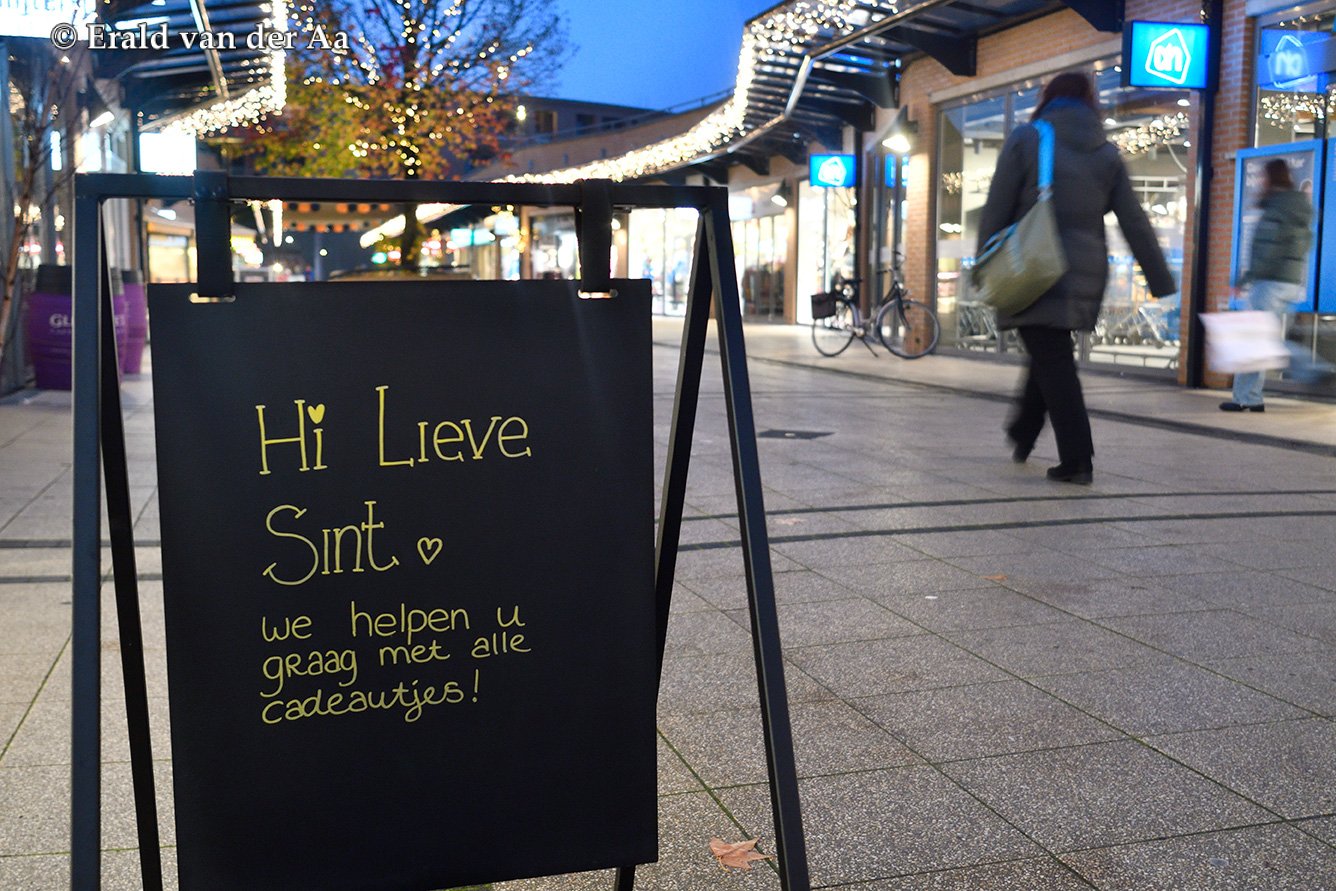 © Erald van der Aa
ah
ah
Hi Lieve
Sint.
we helpen u
graag met alle
cadeautjes!